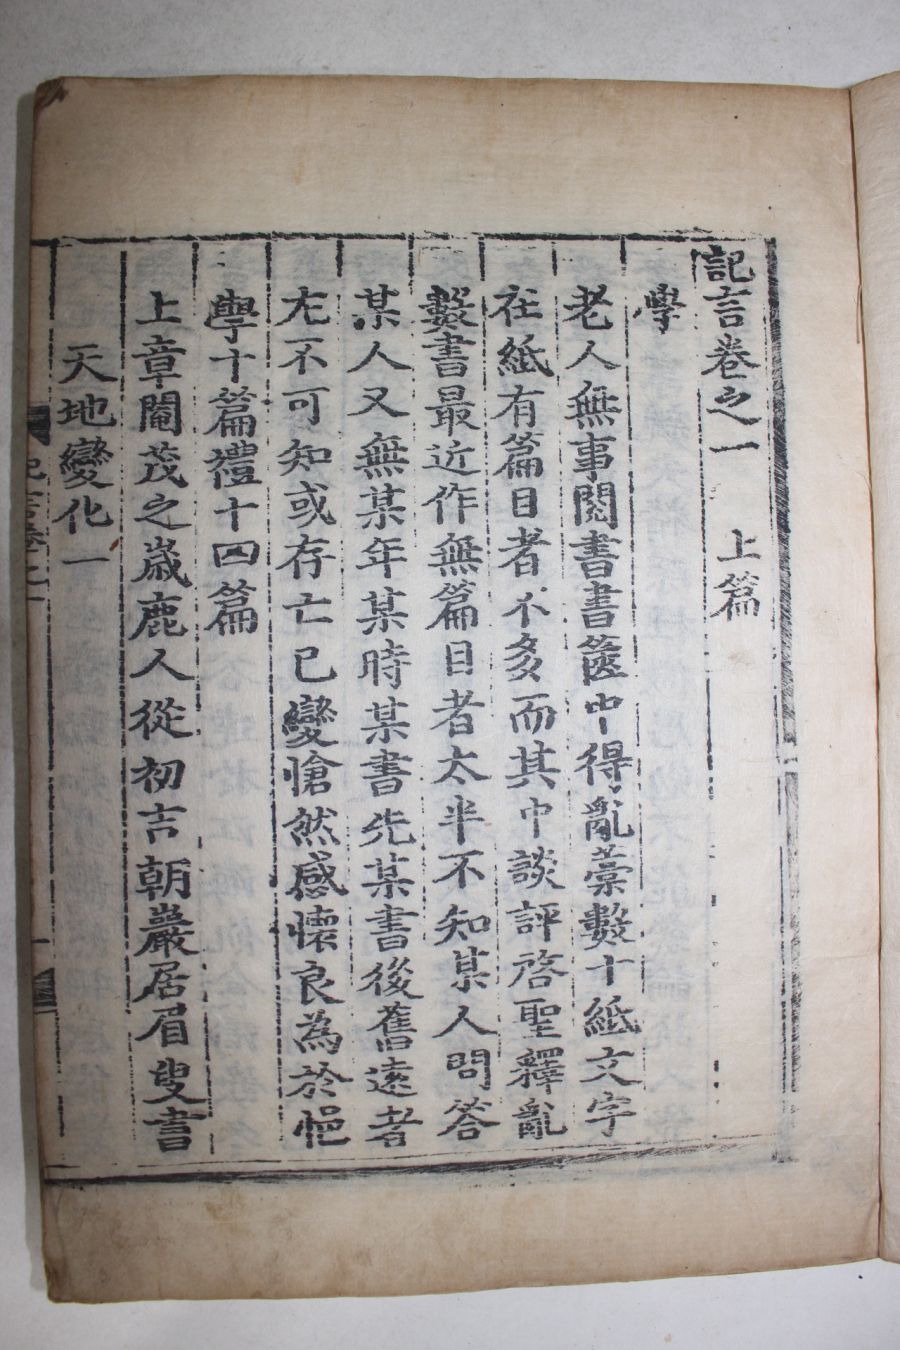 記言卷之一 上篇
學
老人無事閱書書篋中得亂藁數十紙文字
在紙有篇目者不多而其中談評啓聖釋亂
數書最近作無篇目者太半不知某人問答
某人又無某年某時某書先某書後舊遠者
尤不可知或存亡已變愴然感懷良爲於悒
學十篇禮十四篇
上章閹茂之歲鹿人從初吉朝巖居眉叟書
天地變化一
記言卷之一
一